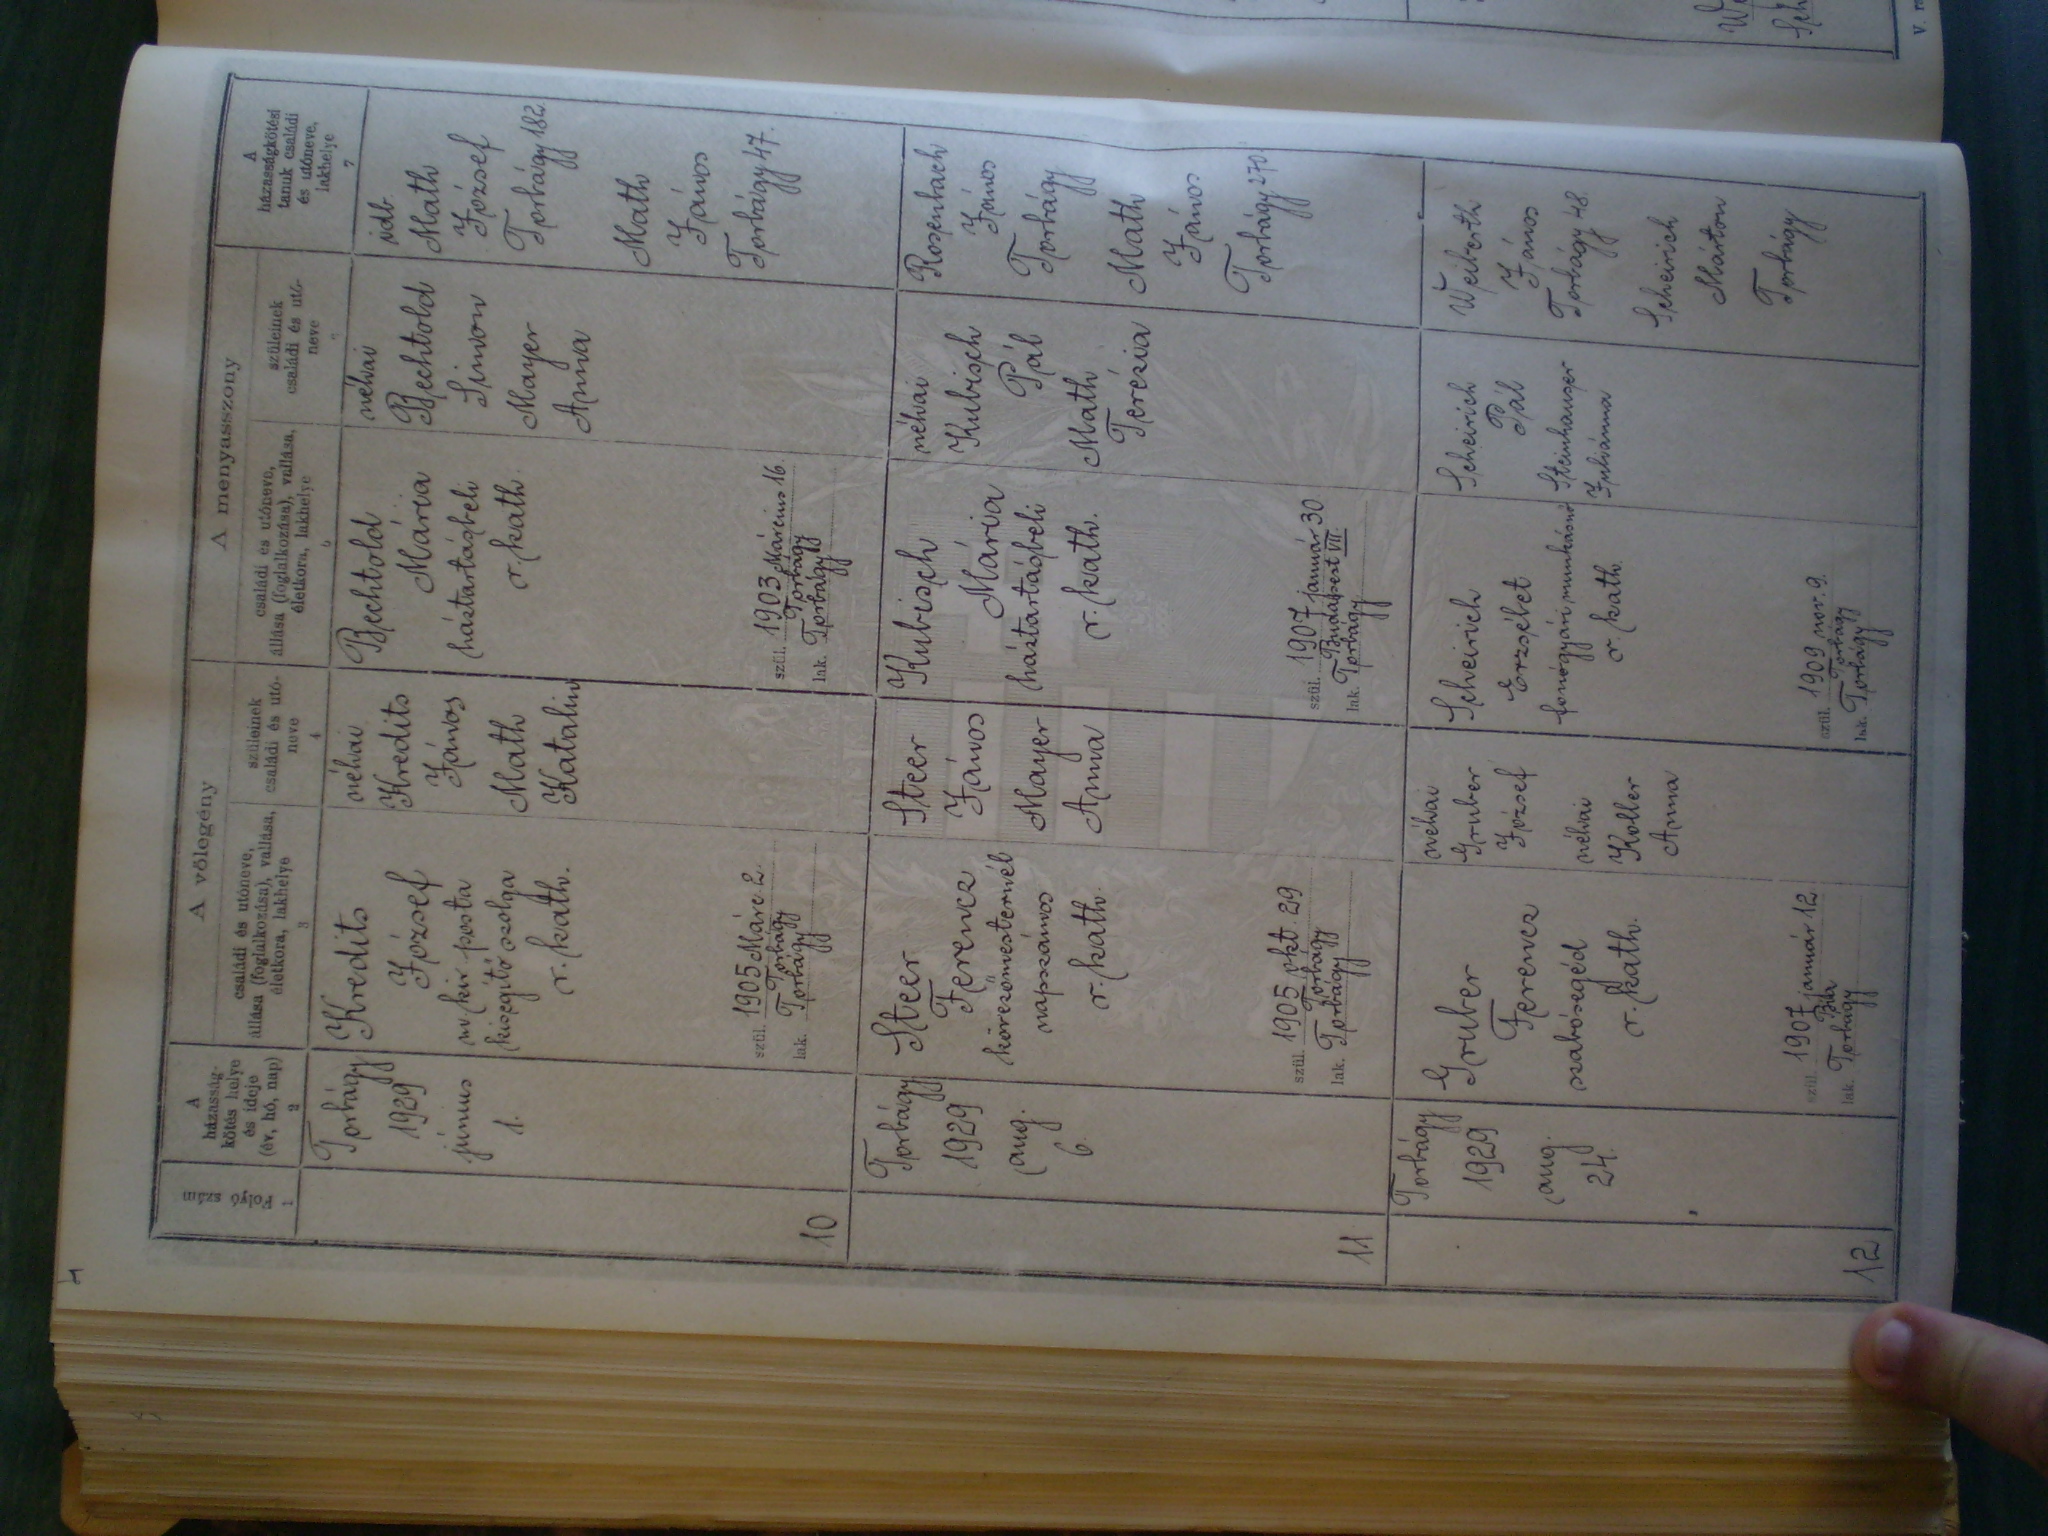 A vőlegény
A menyasszony
Folyó
szám
1
A
házasság-
kötés helye
és ideje
(év, hó, nap)
2
családi és utóneve,
állása (foglalkozása), vallása,
életkora, lakhelye
3
szüleinek
családi és utó-
neve
4
családi és utóneve,
állása (foglalkozása), vallása,
életkora, lakhelye
5
szüleinek
családi és utó-
neve
A
házasságkötési
tanuk családi
és utóneve,
lakhelye
7
10
Torbágy
1929
június
1.
Kredits
József
m. kir. posta
kisegítő szolga
r. kath.
szül. 1905 Márc. 2.
Torbágy
lak. Torbágy
néhai
Kredits
János
Math
Katalin
Bechtold
Mária
háztartásbeli
r. kath.
szül. 1903 Március 16.
Torbágy
lak. Torbágy
néhai
Bechtold
Simon
Mayer
Anna
idb.
Math
József
Torbágy 182.
Math
János
Torbágy 47.
11
Torbágy
1929
aug.
6.
Steer
Ferencz
napszámos
r. kath.
szül. 1905 okt. 29
Torbágy
lak. Torbágy
Steer
János
Mayer
Anna
Kubisch
Mária
háztartásbeli
r. kath.
szül. 1907 január 30
Budapest VII.
lak. Torbágy
néhai
Kubisch
Pál
Math
Terézia
Rosenbach
János
Torbágy
Math
János
Torbágy 270.
12
Torbágy
1929
aug.
24.
Gruber
Ferencz
szabósegéd
r. kath.
szül. 1907 január 12
Bia
lak. Torbágy
néhai
Gruber
József
néhai
Koller
Anna
Scheirich
Erzsébet
fonógyári munkásnő
r. kath.
szül. 1909 nov. 9.
Torbágy
lak. Torbágy
Scheirich
Pál
Steinhauser
Julianna
Weiberth
János
Torbágy 48.
Scheirich
Márton
Torbágy